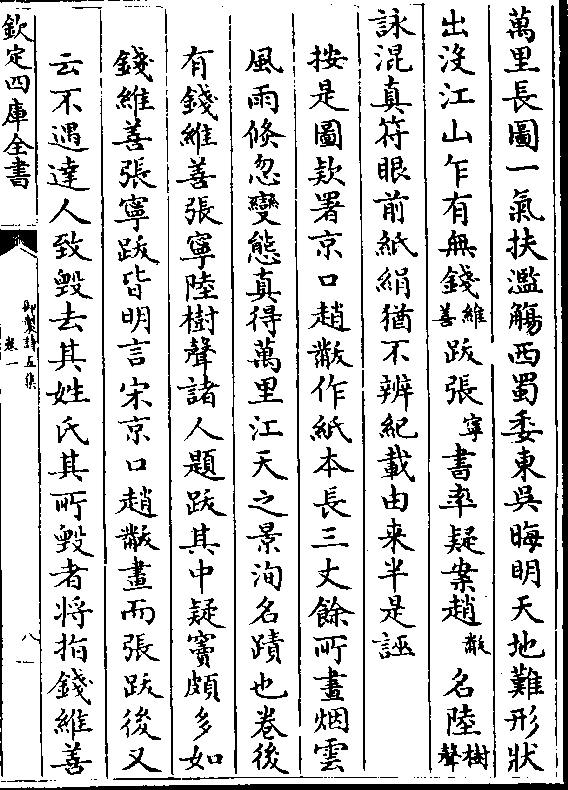 萬里長圖一氣扶濫觴西蜀委東吳晦明天地難形狀
出没江山乍有無錢維善跋張寧書率疑案趙黻名陸樹聲
詠混真符眼前紙絹猶不辨紀載由来半是誣
按是圖欵署京口趙黻作紙本長三丈餘所畫烟雲
風雨倐忽變態真得萬里江天之景洵名蹟也卷後
有錢維善張寧陸樹聲諸人題跋其中疑竇頗多如
錢維善張寧跋皆明言宋京口趙黻畫而張跋後又
云不遇達人致毁去其姓氏其所毁者將指錢維善
欽定四庫全書
御製詩五集
卷一
八